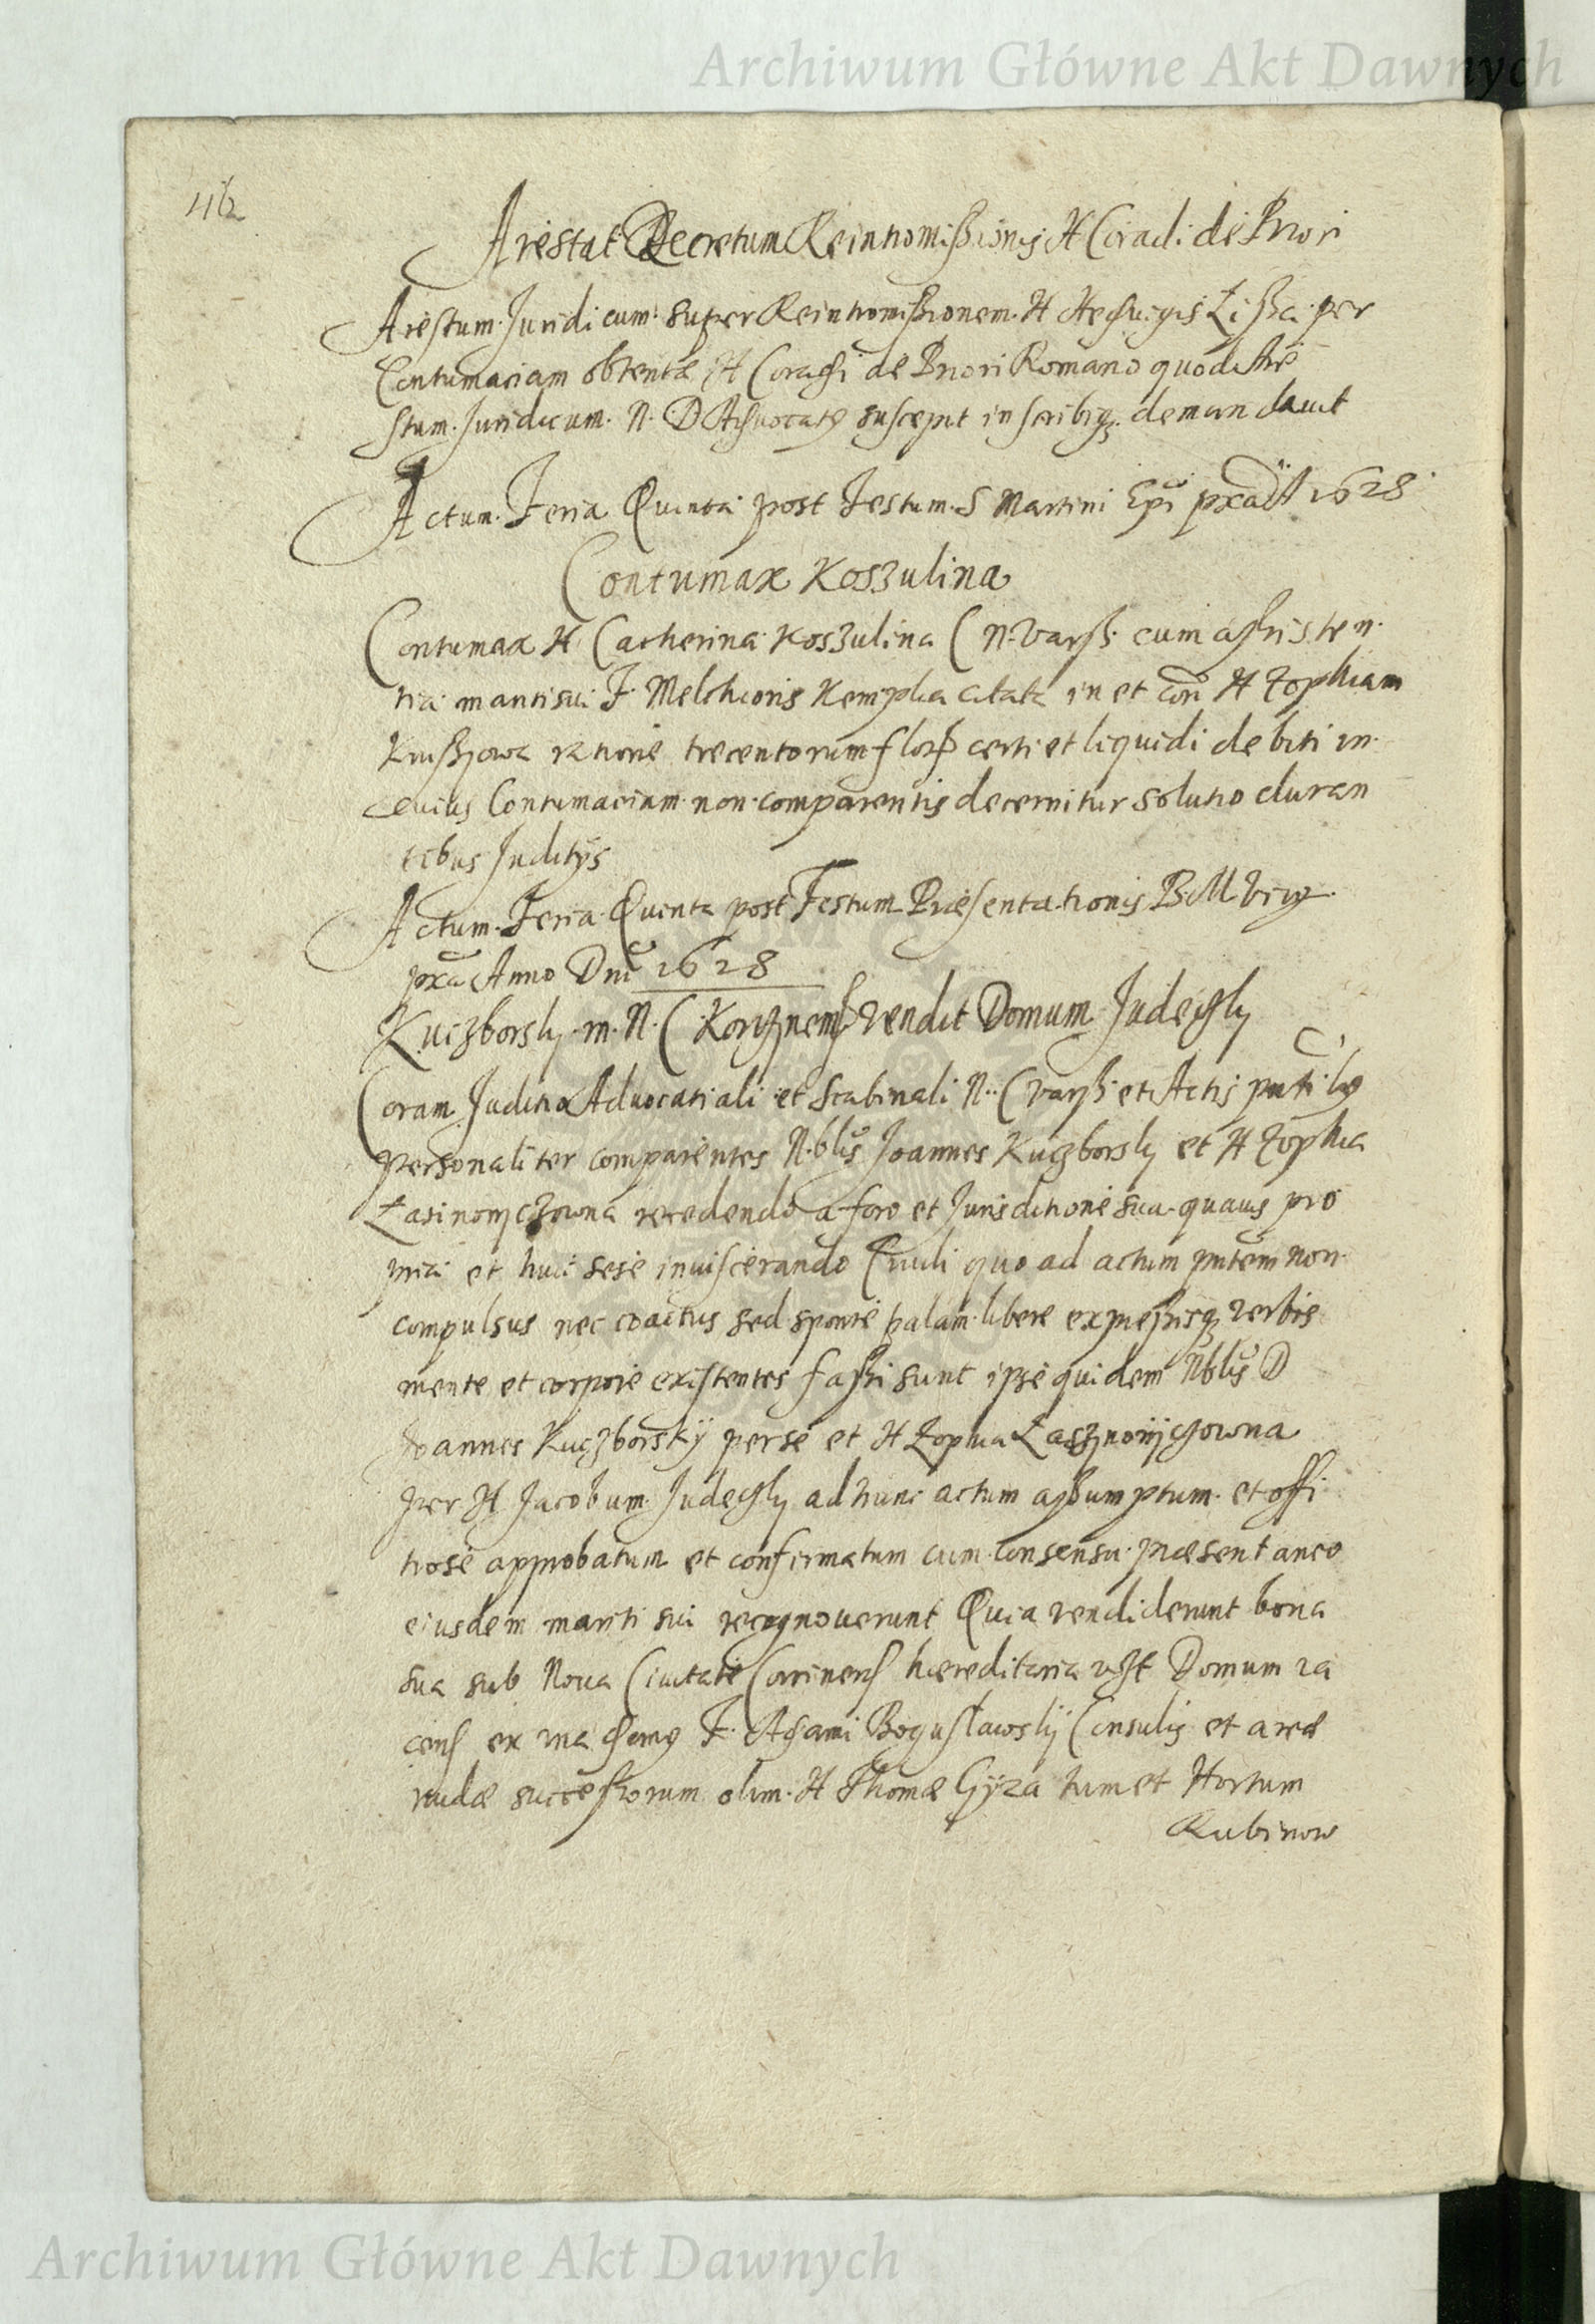 Archiwum Główne Akt Dawnych
462
Arestat Decretum Reintromissionis H Coradi de Priori
Arestum Juridicum super Reintromissionem H Hedvigis Liska per
Contumaciam obtentæ H Coradi de Priori Romano quod Are
stum Juridicum N. D Advocatus suscepit inscribiq3 demandavit
Actum Feria Quinta post Festum S Martini Epi pxa A 1628
Contumax Koszulina
Contumax H Catherina Koszulina C N. Varss. cum assisten
tia mariti sui F. Melchioris Kempka citata in et con H Zophiam
ratione trecentorum flor certi et liquidi debiti in
cuius Contumaciam non comparentis decernitur solutio duran
tibus Juditijs
Actum Feria Quinta post Festum Præsentationis B M Virg
pxa Anno Dni 1628
Kuczborsky m. N. C. vendit Domum Judecky
Coram Juditio Advocatiali et Scabinali N. C Varss et Actis pnti bg
personaliter comparentes N.blis Joannes Kuczborsky et H Zophia
recedendo a foro et Jurisditione sua quavis pro
pria et huic sese inviscerando quo ad actum pntem non
compulsus nec coactus sed sponte palam libere expressisq3 verbis
mente et corpore existentes fassi sunt ipse quidem Nblis D
Joannes Kuczborskÿ per se et H Zophia
per H Jacobum Judecky ad hunc actum assumptum et offi
tiose approbatum et confirmatum cum consensu præsentaneo
eiusdem mariti sui recognoverunt Quia vendiderunt bona
sua sub Nova Civitate hæreditaria vsst Domum ia
cens ex una domg F. Adami Bogusławsky Consulis et area
nudæ successorum olim H Thomæ Gÿza tum et Hortum
Rubinow
Archiwum Główne Akt Dawnych